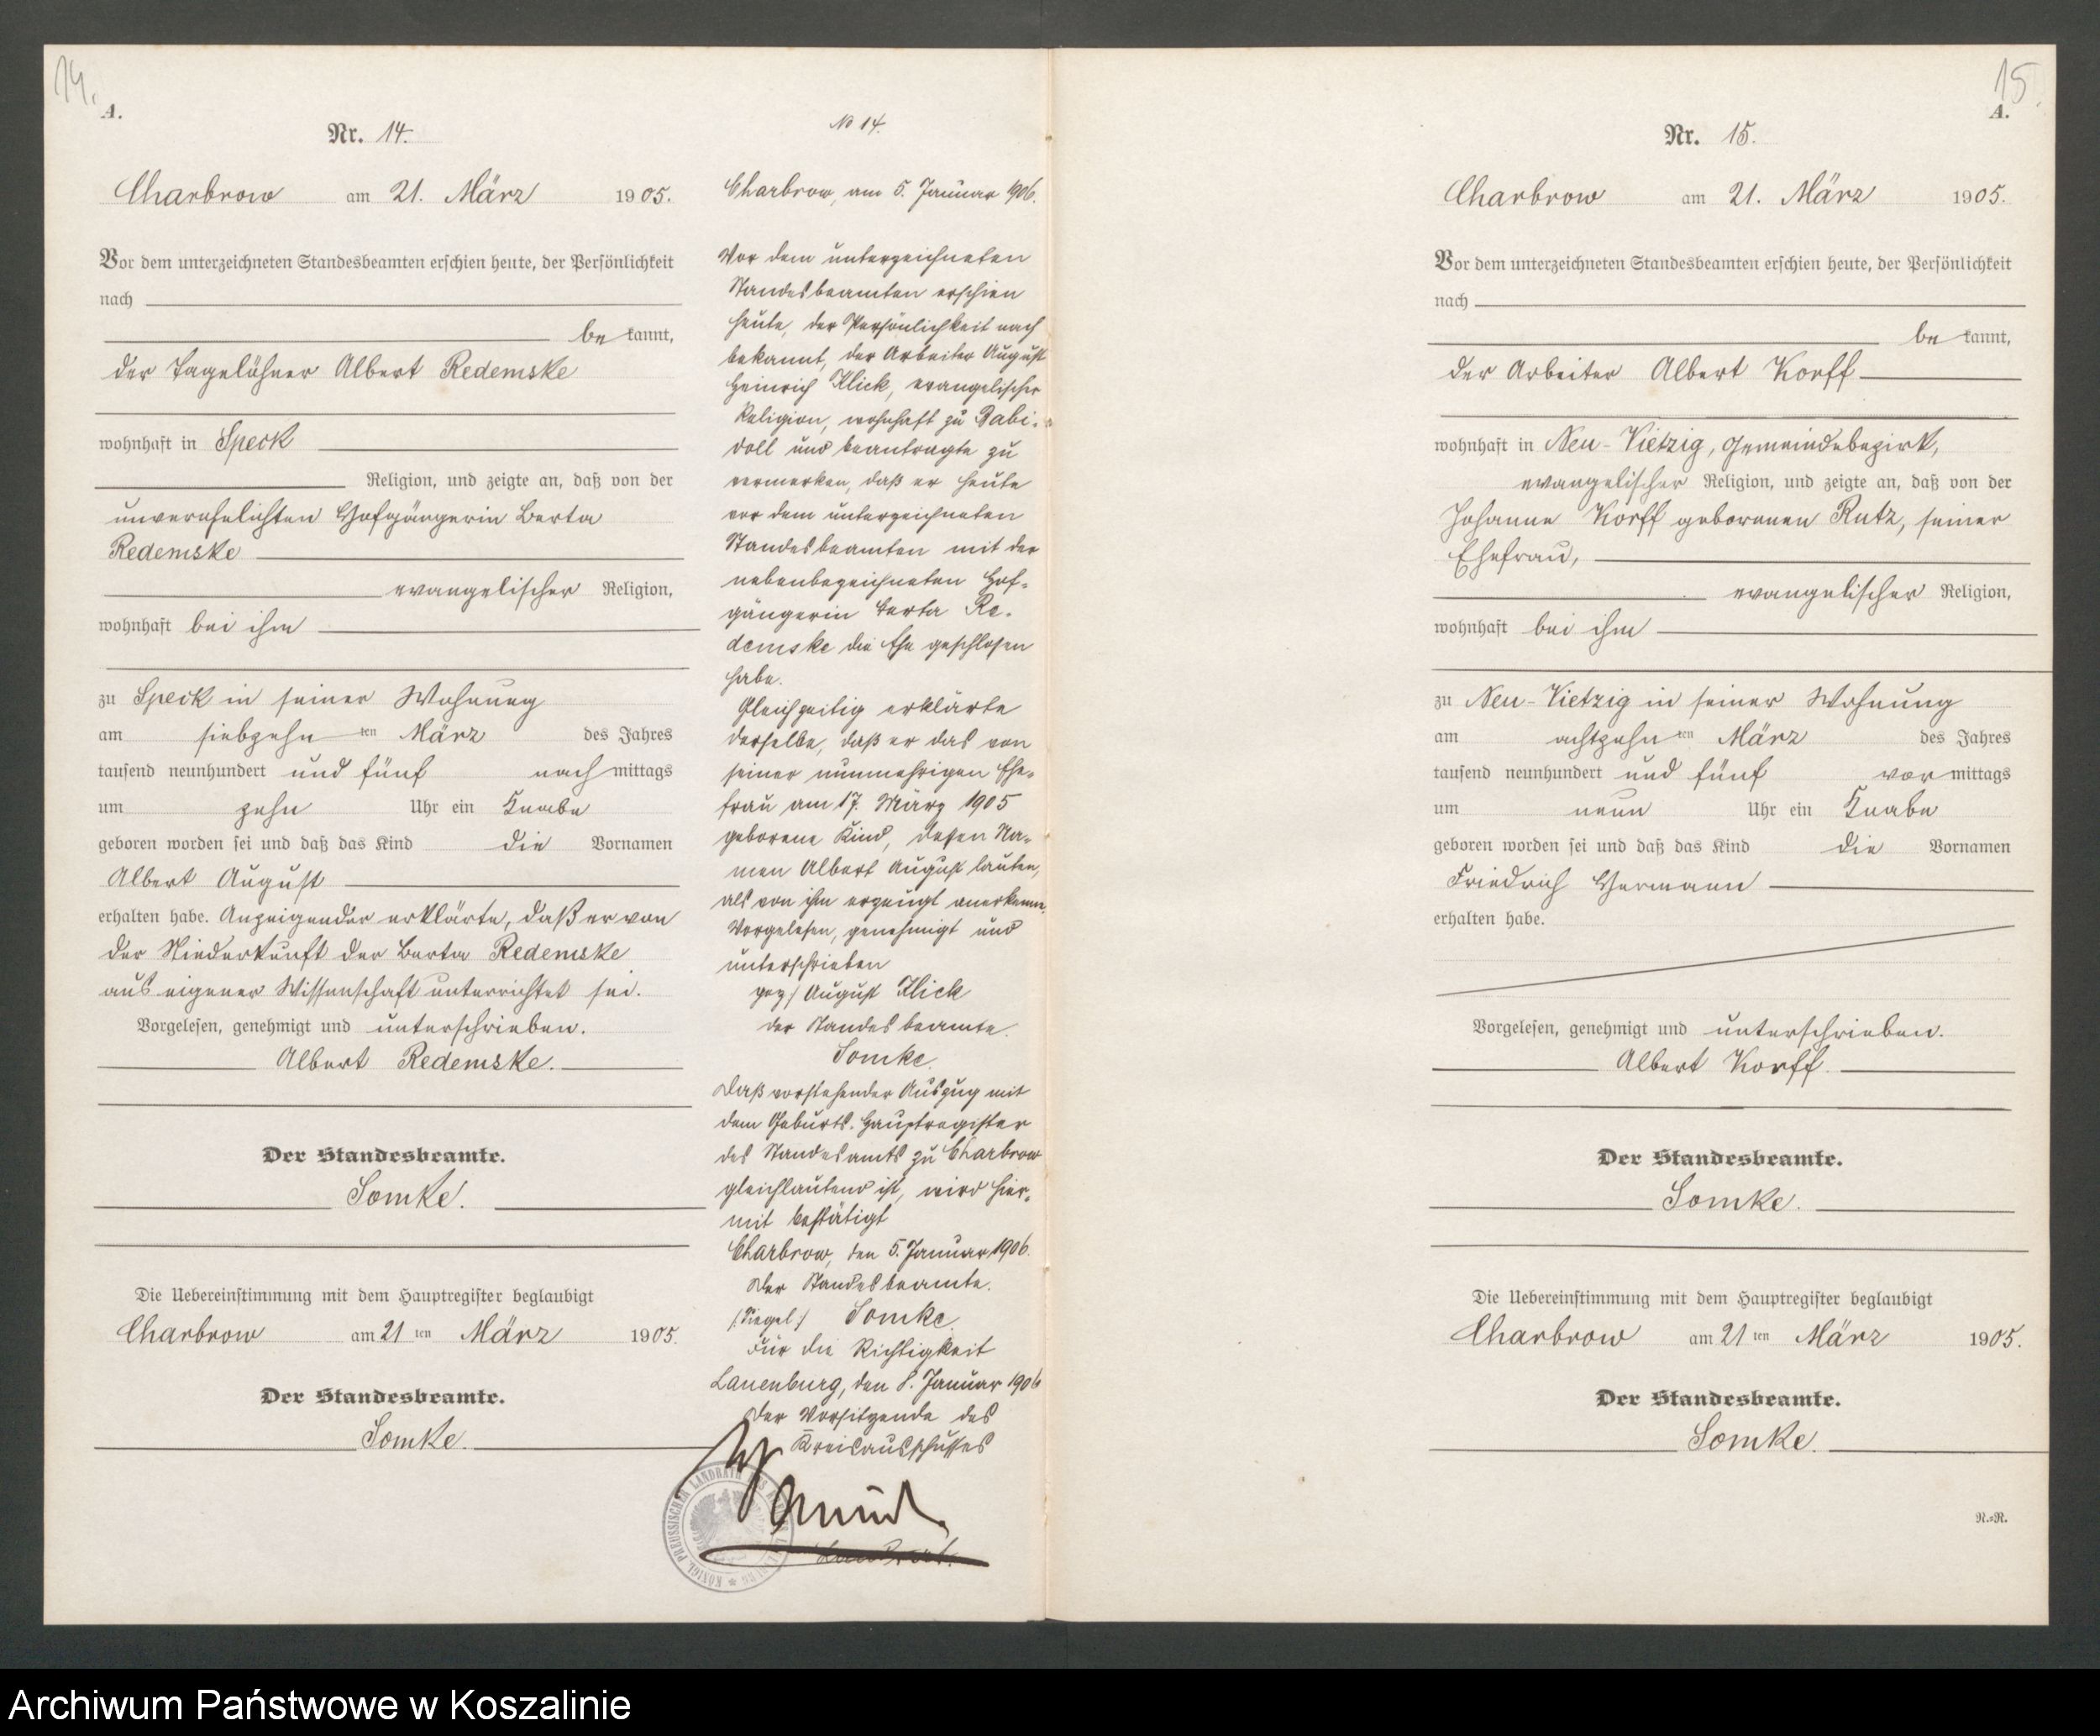 14.
A.
Nr. 14.
Charbrow am 21. März 1905.
Vor dem unterzeichneten Standesbeamten erschien heute, der Persönlichkeit
nach
be kannt,
der Tagelöhner Albert Redemske
wohnhaft in Speck
Religion, und zeigte an, daß von der
unverehelichten Hofgängerin Berta
Redemske
evangelischer Religion,
wohnhaft bei ihm
zu Speck in seiner Wohnung
am siebzehn ten März des Jahres
tausend neunhundert und fünf nach mittags
um zehn Uhr ein Knabe
geboren worden sei und daß das Kind die Vornamen
Albert August
erhalten habe. Anzeigender erklärte, daß er von
der Niederkunft der Berta Redemske
aus eigener Wissenschaft unterrichtet sei.
Vorgelesen, genehmigt und unterschrieben.
Albert Redemske.
Der Standesbeamte.
Somke.
Die Uebereinstimmung mit dem Hauptregister beglaubigt
Charbrow am 21 ten März 1905.
Der Standesbeamte.
Somke.
No 14.
Charbrow, am 5. Januar 1906.
Vor dem unterzeichneten
Standesbeamten erschien
heute, der Persönlichkeit nach
bekannt, der Arbeiter August
Heinrich Klick, evangelischer
Religion, wohnhaft zu Babi-
doll und beantragte zu
vermerken, daß er heute
vor dem unterzeichneten
Standesbeamten mit der
nebenbezeichneten Hof-
gängerin Berta Re-
demske die Ehe geschlossen
habe.
Gleichzeitig erklärte
derselbe, daß er das von
seiner nunmehrigen Ehe-
frau am 17. März 1905
geborene Kind, dessen Na-
men Albert August lauten,
als von ihm erzeugt anerkenne.
Vorgelesen, genehmigt und
unterschrieben
gez/ August Klick
Der Standesbeamte.
Somke.
Daß vorstehender Auszug mit
dem Geburts-Hauptregister
des Standesamts zu Charbrow
gleichlautend ist, wird hier-
mit bestätigt
Charbrow, den 5. Januar 1906.
Der Standesbeamte.
/:Siegel:/ Somke.
Für die Richtigkeit
Lauenburg, den 8. Januar 1906
Der Vorsitzende des
Kreisausschusses
Landrat.
15.
A.
Nr. 15.
Charbrow am 21. März 1905.
Vor dem unterzeichneten Standesbeamten erschien heute, der Persönlichkeit
nach
be kannt,
der Arbeiter Albert Korff
wohnhaft in Neu-Vietzig, Gemeindebezirk,
evangelischer Religion, und zeigte an, daß von der
Johanne Korff geborenen Rutz, seiner
Ehefrau,
evangelischer Religion,
wohnhaft bei ihm
zu Neu-Vietzig in seiner Wohnung
am achtzehn ten März des Jahres
tausend neunhundert und fünf vor mittags
um neun Uhr ein Knabe
geboren worden sei und daß das Kind die Vornamen
Friedrich Hermann
erhalten habe.
Vorgelesen, genehmigt und unterschrieben.
Albert Korff.
Der Standesbeamte.
Somke.
Die Uebereinstimmung mit dem Hauptregister beglaubigt
Charbrow am 21 ten März 1905.
Der Standesbeamte.
Somke.
N.=R.
Archiwum Państwowe w Koszalinie